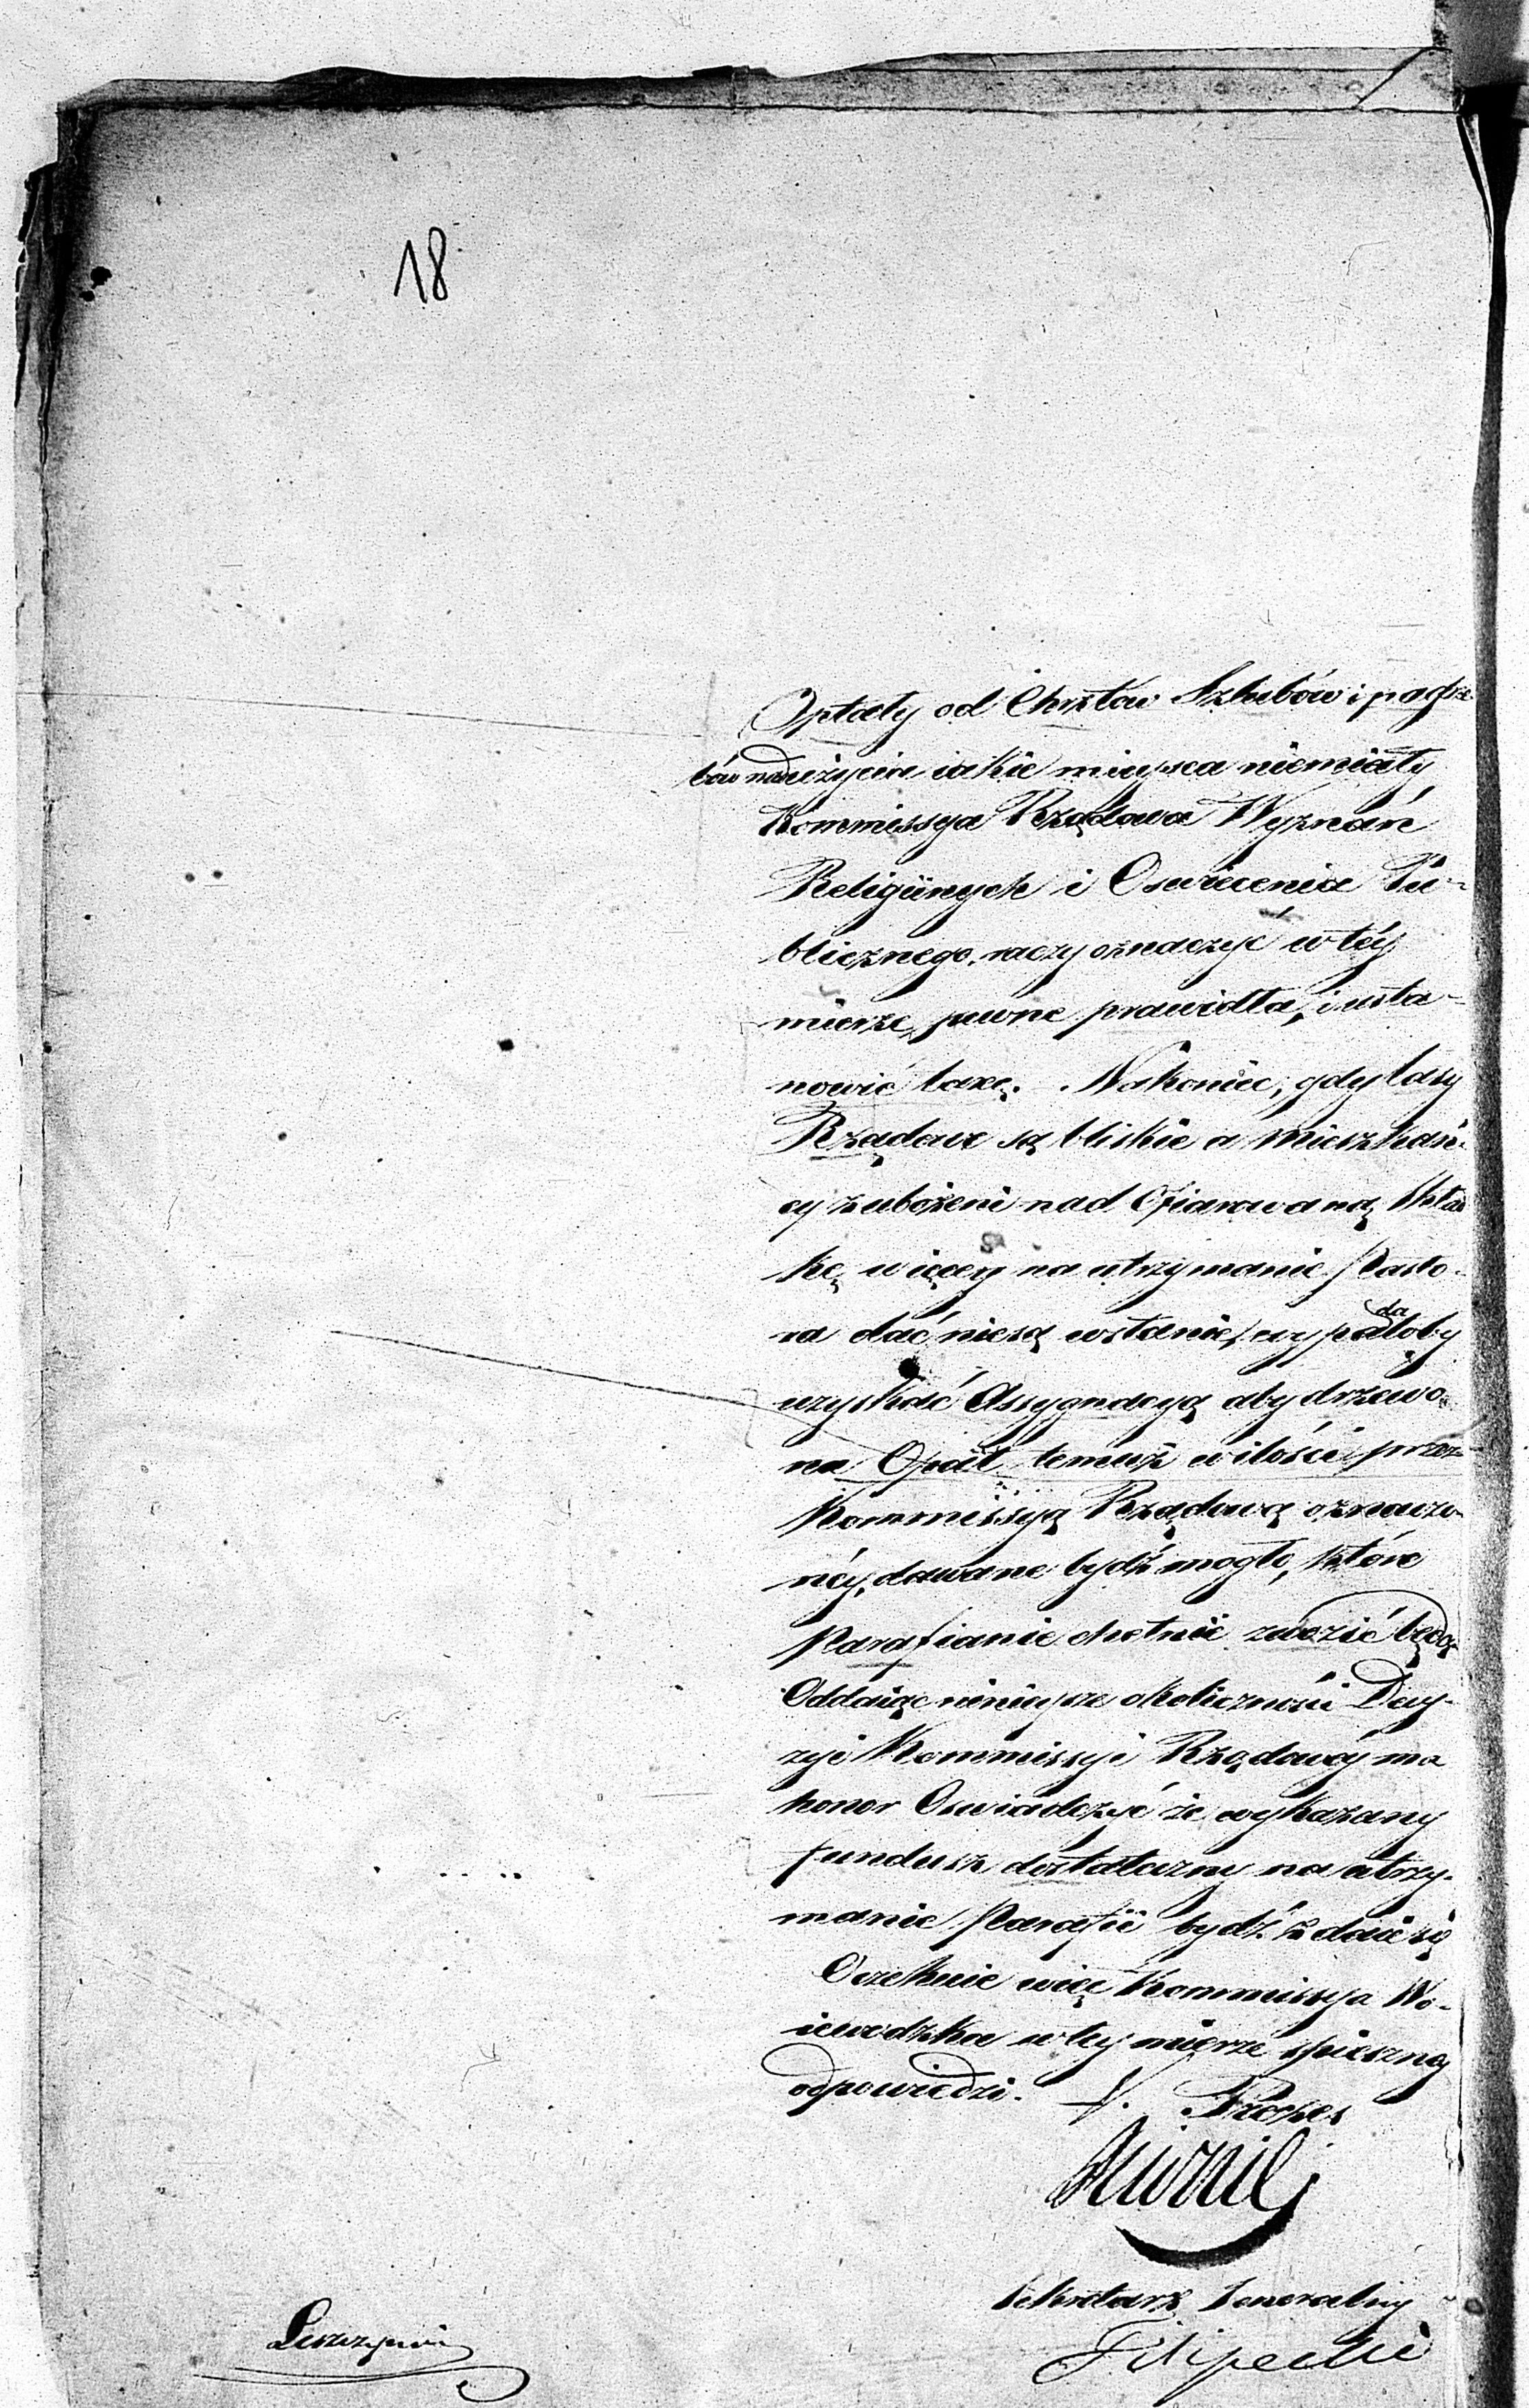 18
Opłaty od Chrztów Szlubów i pogrze-
bów nadużycia iakie mieysca niemiały
Kommissya Rządowa Wyznań
Religiinych i Oswiecenia Pu-
blicznego, raczy oznaczyć w téy
mierze, pewne prawidła, i usta-
nowić taxę. Nakoniec, gdy lasy
Rządowe są bliskie a mieszkań-
cy zubożeni nad Ofiarowaną skład
kę więcey na utrzymanie Pasto-
ra dać niesą wstanie, wypadałoby
uzyskać Assygnacyą aby drzewo
na Opał temuż w ilości przez
Kommissyą Rządową oznaczo-
néy, dawane bydź mogło, które
Parafianie chetnie zwozić będą
Oddaiąc ninieysze okoliczności Decy-
zyi Kommissyi Rządowéy ma
honor Oswiadczyć że wykazany
fundusz dostateczny na utrzy-
manie Parafii bydź zdaie się
Oczekuie więc Kommissya Wo-
iewodzka w tey mierze spieszney
odpowiedzi.
Prezes
Sekretarz Jeneralny
Filipecki